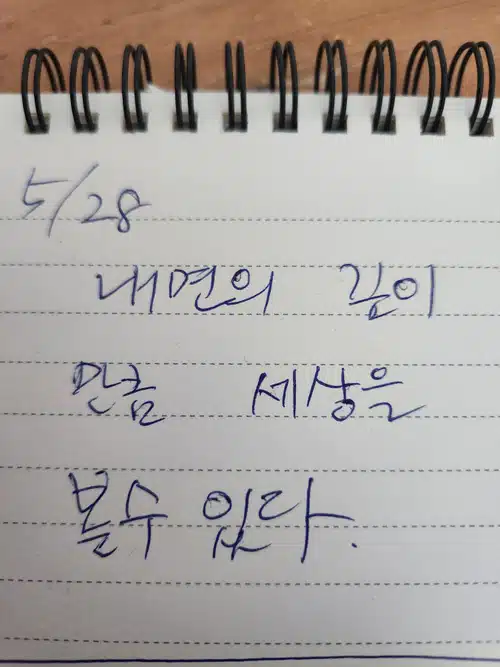 5/28
내면의 깊이
만큼 세상을
볼수 있다.